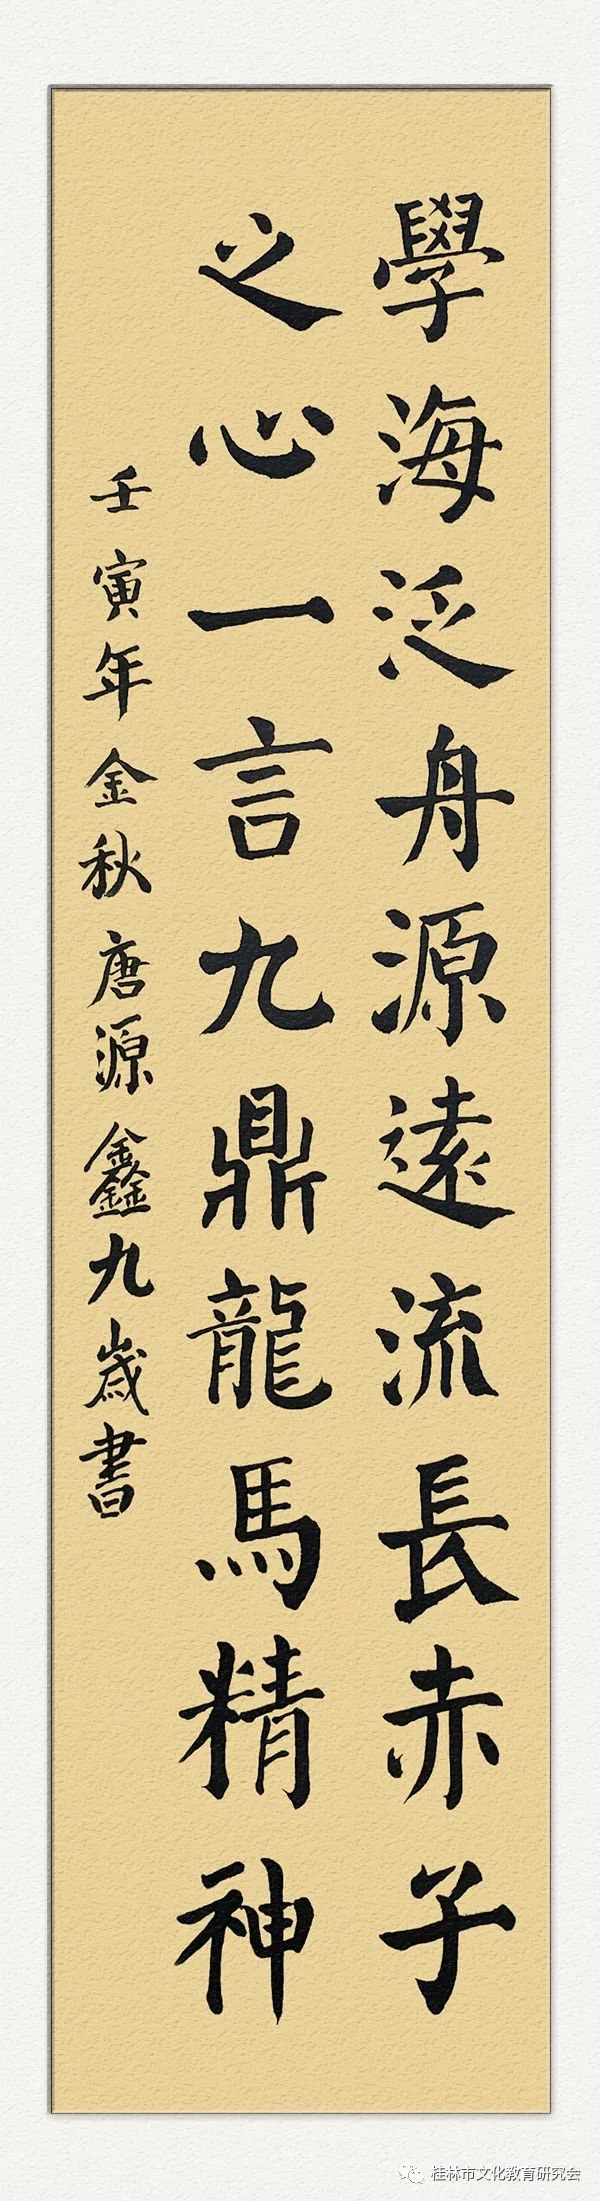 學海泛舟源遠流長赤子
之心一言九鼎龍馬精神
壬寅年金秋唐源鑫九歲書
桂林市文化教育研究会